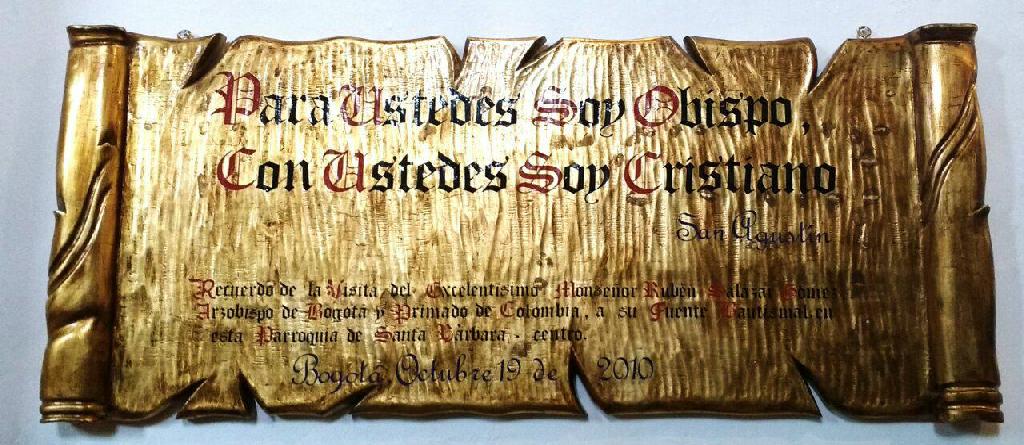 Para Ustedes Soy Obispo,
Con Ustedes Soy Cristiano
San Agustín
Recuerdo de la Visita del Excelentisimo Monseñor Rubén Salazar Gomez
Arzobispo de Bogota y Primado de Colombia, a su Fuente Bautismal en
esta Parroquia de Santa Bárbara - centro.
Bogotá, Octubre 19 de 2010